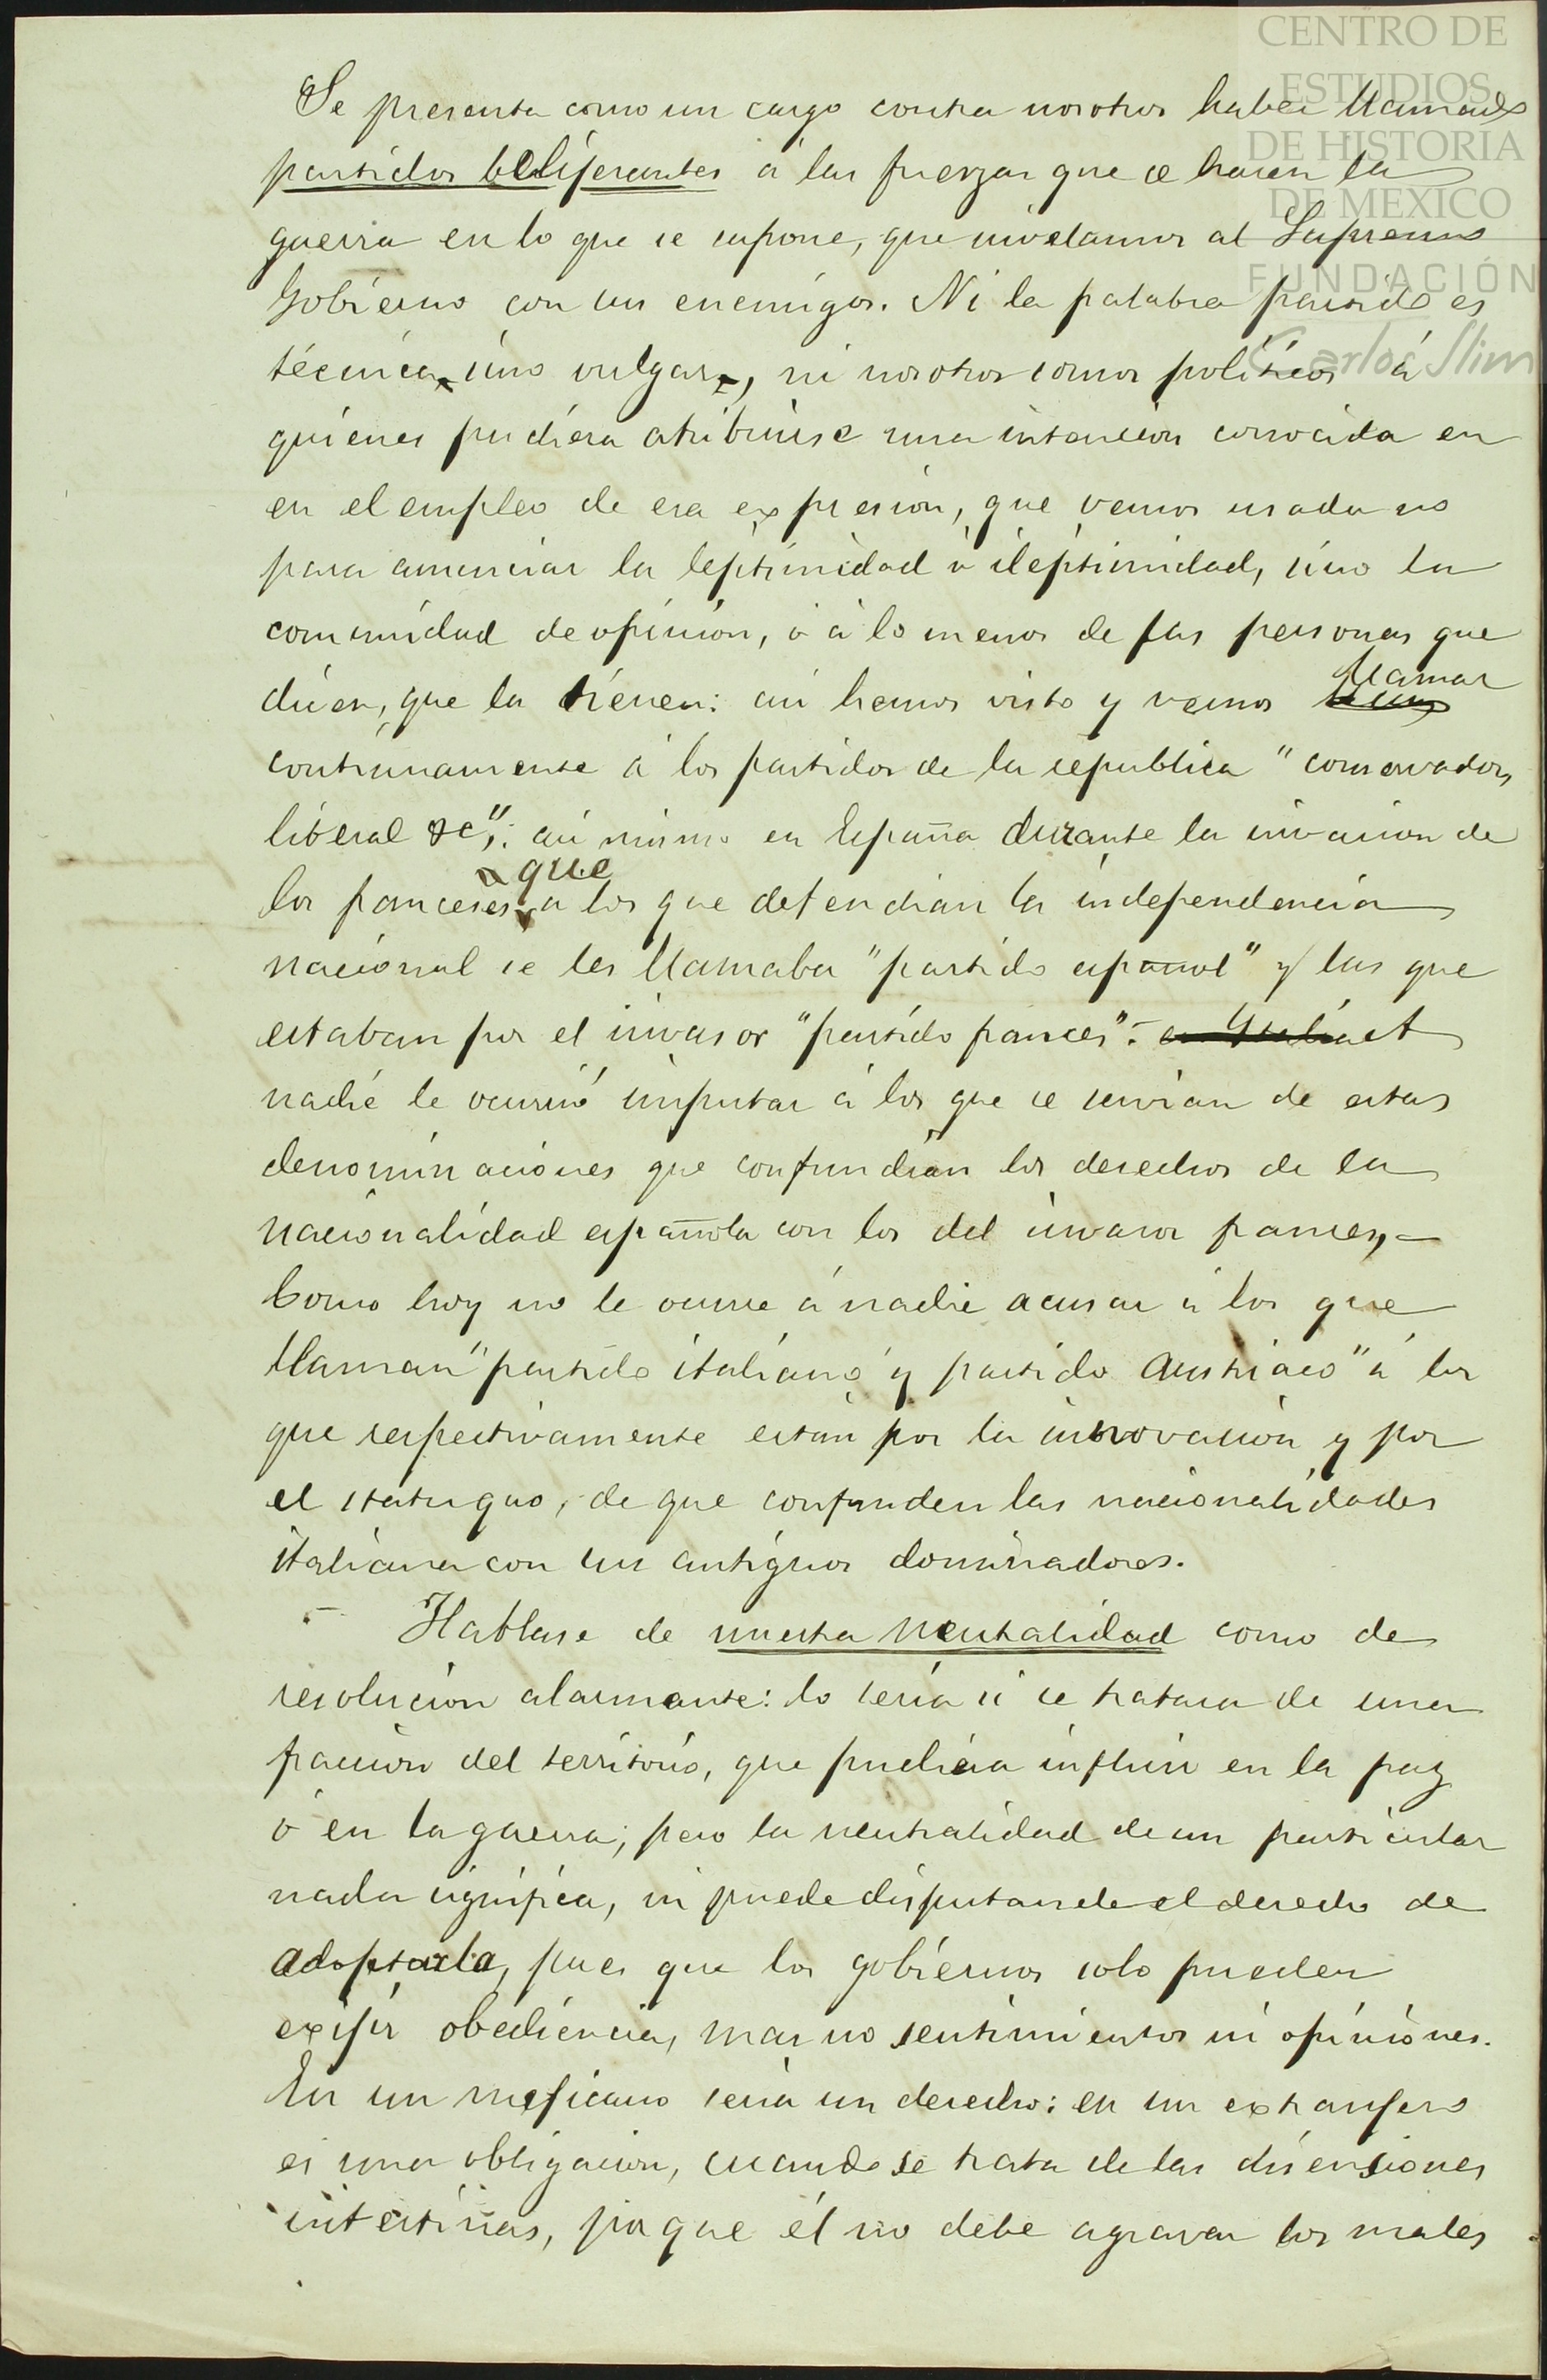 CENTRO DE
ESTUDIOS
DE HISTORIA
DE MEXICO
FUNDACIÓN
Carlos Slim
Se presenta como un cargo contra nosotros haber llamado
partidos beligerantes á las fuerzas que se hacen la
guerra en lo que se supone, que nivelamos al Supremo
Gobierno con sus enemigos. Ni la palabra partido es
técnica, sino vulgar, ni nosotros somos políticos á
quienes pudiera atribuirse una intencion conocida en
en el empleo de esa expresion, que vemos usada no
para anunciar la legitimidad ó ilegitimidad, sino la
comunidad de opinión, ó á lo menos de las personas que
dicen, que la tienen: asi hemos visto y vemos llamar
continuamente á los partidos de la republica "conservador,
liberal &c": asi mismo en España durante la invasion de
los franceses que a los que defendian la independencia
nacional se les llamaba "partido español" y los que
estaban por el invasor "partido frances". A
nadie le ocurrió imputar á los que se servian de estas
denominaciones que confundian los derechos de la
nacionalidad española con los del invasor frances,
Como hoy no le ocurre á nadie acusar á los que
llaman "partido italiano y partido austriaco" á los
que respectivamente están por la innovacion y por
el statu quo, de que confunden las nacionalidades
italiana con sus antiguos dominadores.
Hablase de nuestra neutralidad como de
resolucion alarmante: lo seria si se tratara de una
fraccion del territorio, que pudiera influir en la paz
ó en la guerra; pero la neutralidad de un particular
nada significa, ni puede disputarsele el derecho de
adoptarla, pues que los gobiernos solo pueden
exijir obediencia, mas no sentimientos ni opiniones.
En un mejicano seria un derecho: en un extranjero
es una obligacion, cuando se trata de las disensiones
intestinas, porque él no debe agravar los males